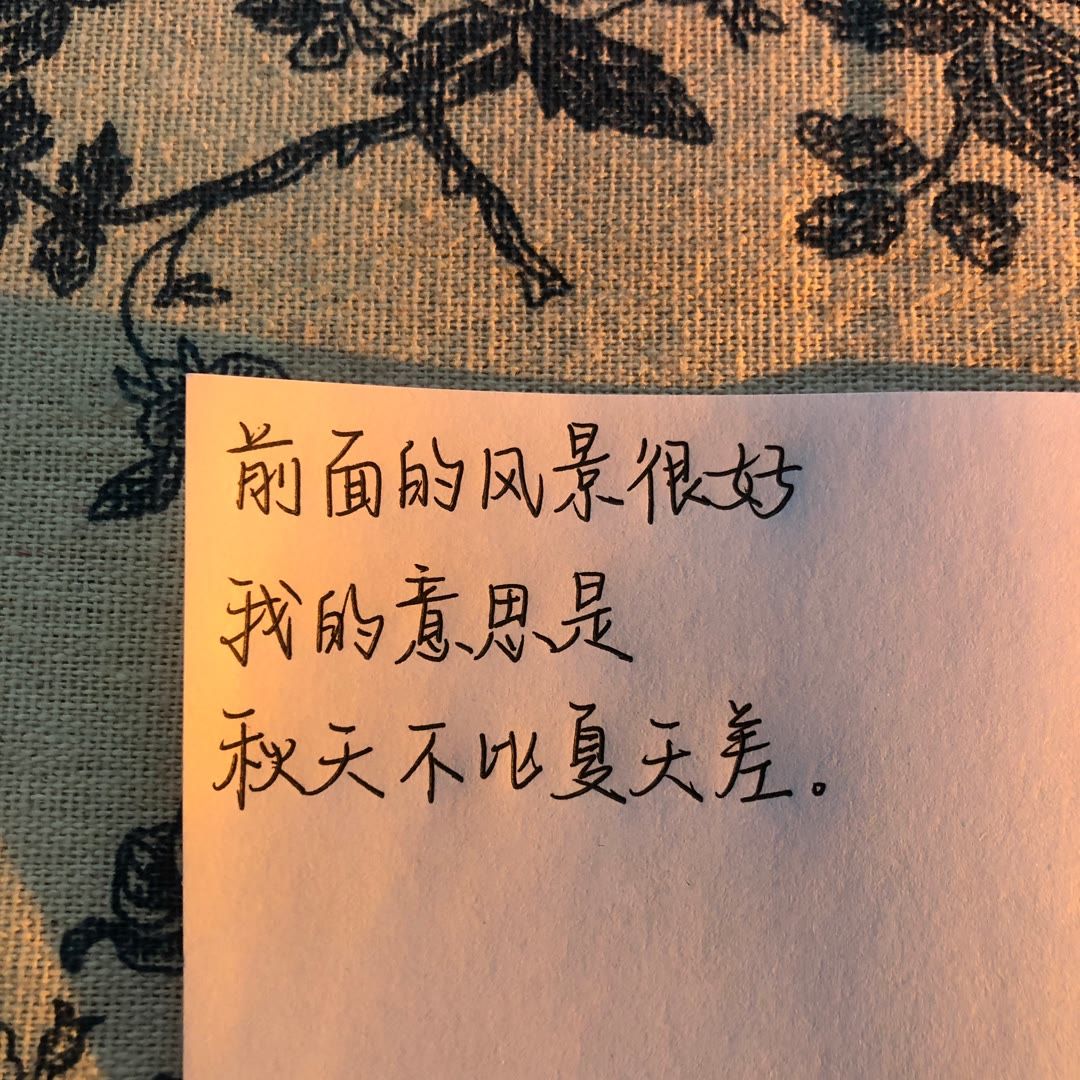 前面的风景很好
我的意思是
秋天不比夏天差。